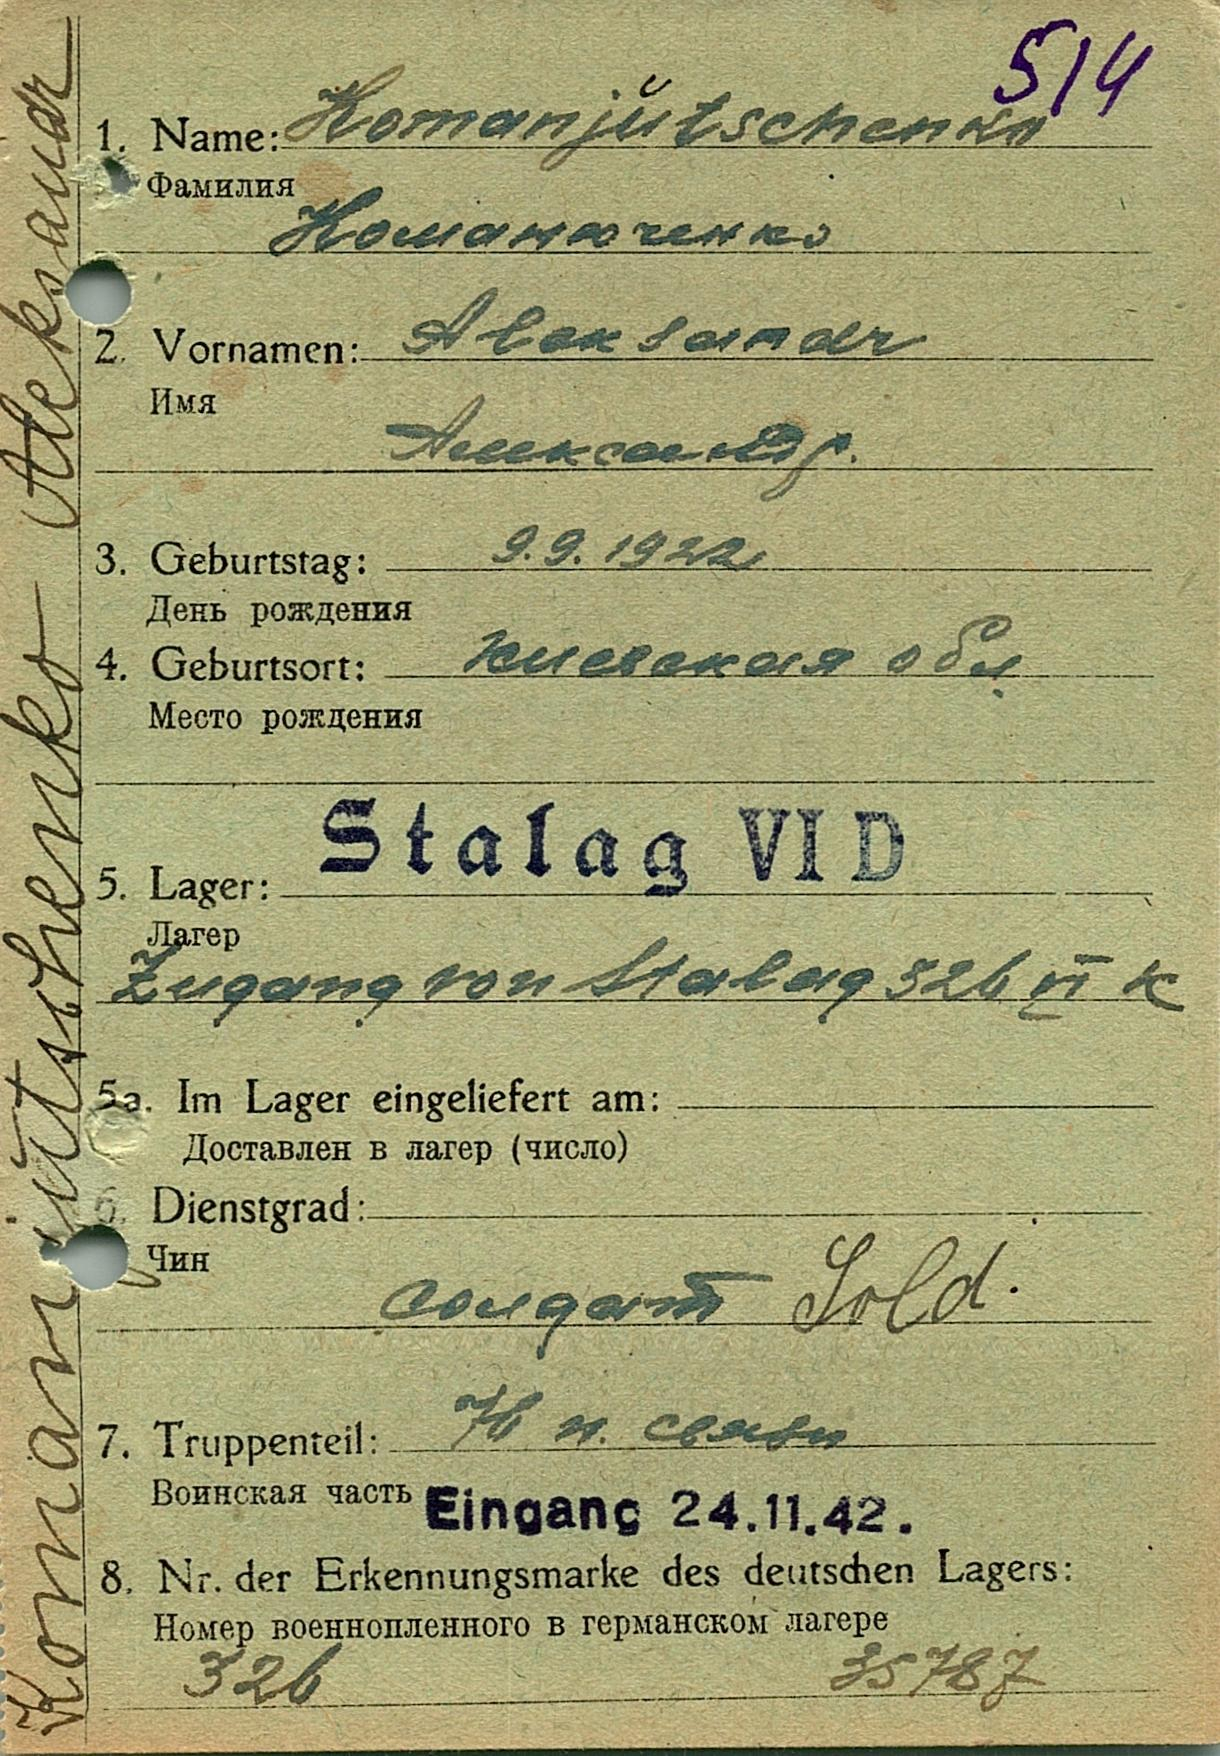 514
1. Name: Komanjŭtschenko
Фамилия
Команюченко
2. Vornamen: Aleksandr
Имя
Александр.
3. Geburtstag: 9.9.1922
День рождения
4. Geburtsort: Киевская обл
Место рождения
Stalag VI D
5. Lager:
Лагер
Zugang von Stalag 326 VI K
5a. Im Lager eingeliefert am:
Доставлен в лагер (число)
6. Dienstgrad:
Чин
солдат Sold.
7. Truppenteil: 76 п. связи
Воинская часть
Eingang 24.11.42.
8. Nr. der Erkennungsmarke des deutschen Lagers:
Номер военнопленного в германском лагере
326 35787
Komanjŭtschenko Aleksandr